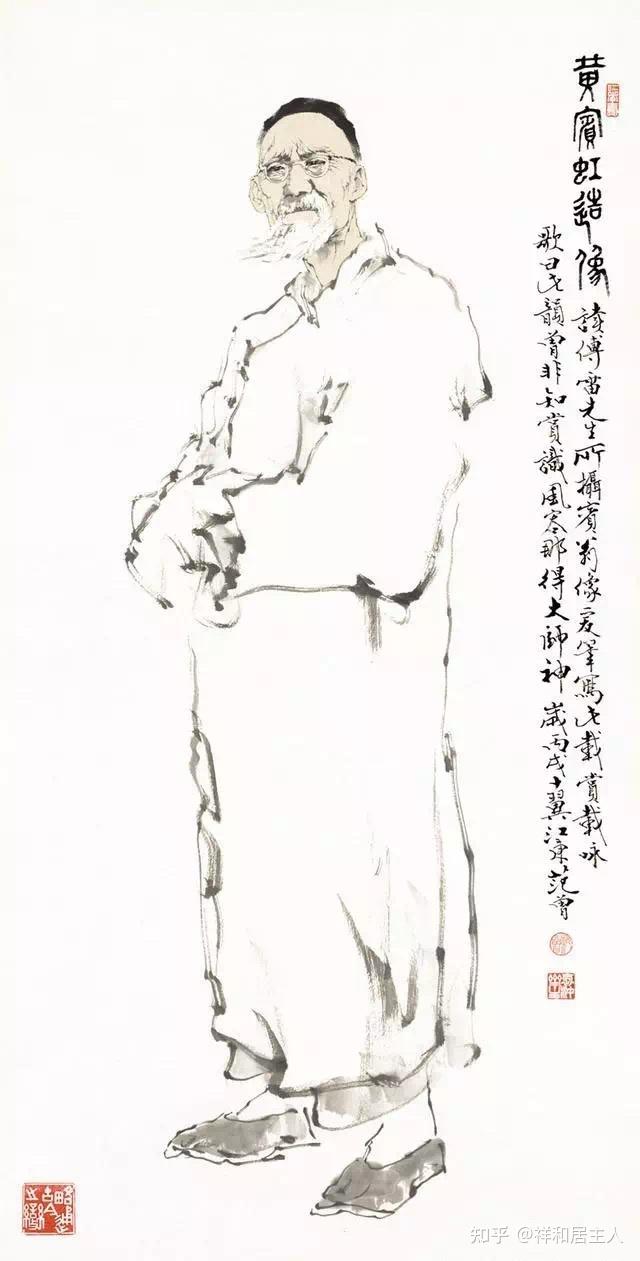 黄賓虹造像
讀傅雷先生所攝賓翁像爰筆寫此載賞載咏
歌曰此韻曾非知賞識風那得大師神 歲丙戌十翼江東范曾
略通古今之變
知乎 @祥和居主人